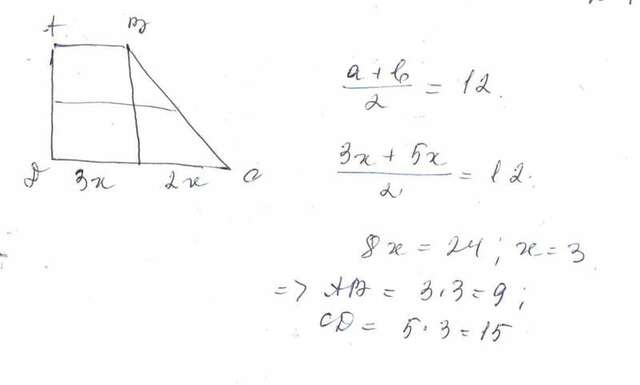 A B
D 3x 2x C
a + b / 2 = 12.
3x + 5x / 2 = 12.
8x = 24; x = 3
=> AB = 3·3 = 9;
CD = 5·3 = 15